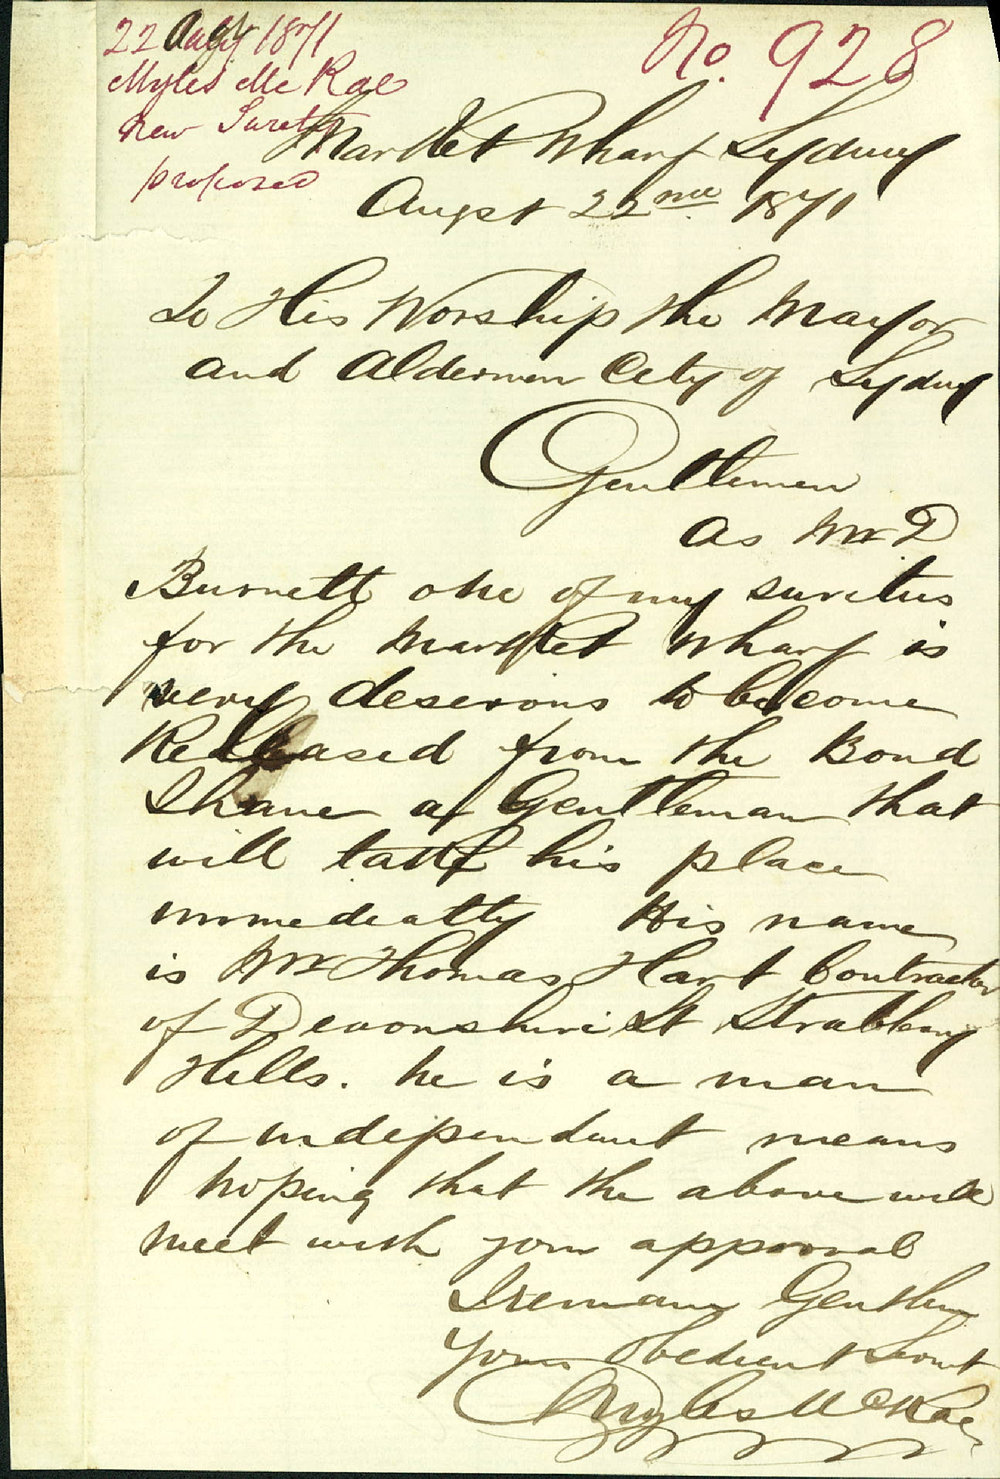 22 Augt 1871
Myles Mc Rae
New Surety
proposed
No. 928
Market Wharf Sydney
Augst 22nd 1871
To His Worship the Mayor
and Aldermen City of Sydney
Gentlemen
As Mr D
Burnett one of my sureties
for the Market Wharf is
very deserous to become
Released from the Bond
I have a Gentleman that
will take his place
immedeatly His name
is Mr Thomas Hart Contractor
of Devonshire St Strabbery
Hills. he is a man
of independant means
hoping that the above will
meet with your approval
I remain Gentlem
Your Obedient Servt
Myles McRae